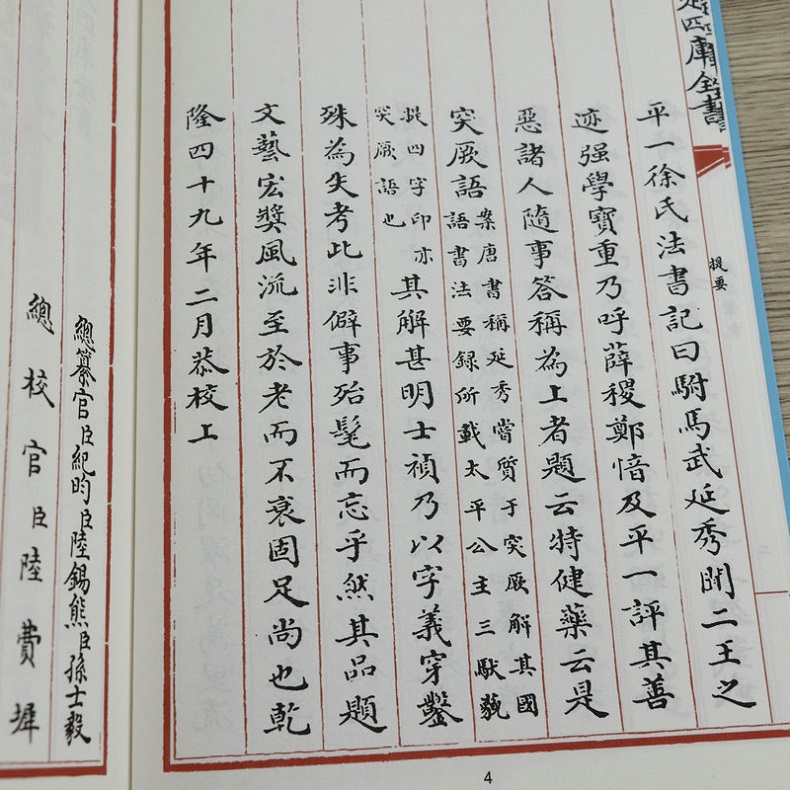 定四庫全書
提要
平一徐氏法書記曰駙馬武延秀閱二王之
迹强學寶重乃呼薛稷鄭愔及平一評其善
惡諸人隨事答稱為上者題云特健藥云是
突厥語案唐書稱延秀嘗質于突厥解其國語書法要録所載太平公主三馱藐
提四字印亦突厥語也其解甚明士禎乃以字義穿鑿
殊為失考此非僻事殆髦而忘乎然其品題
文藝宏奬風流至於老而不衰固足尚也乾
隆四十九年二月恭校上
總纂官臣紀昀臣陸錫熊臣孫士毅
總校官臣陸費墀
4